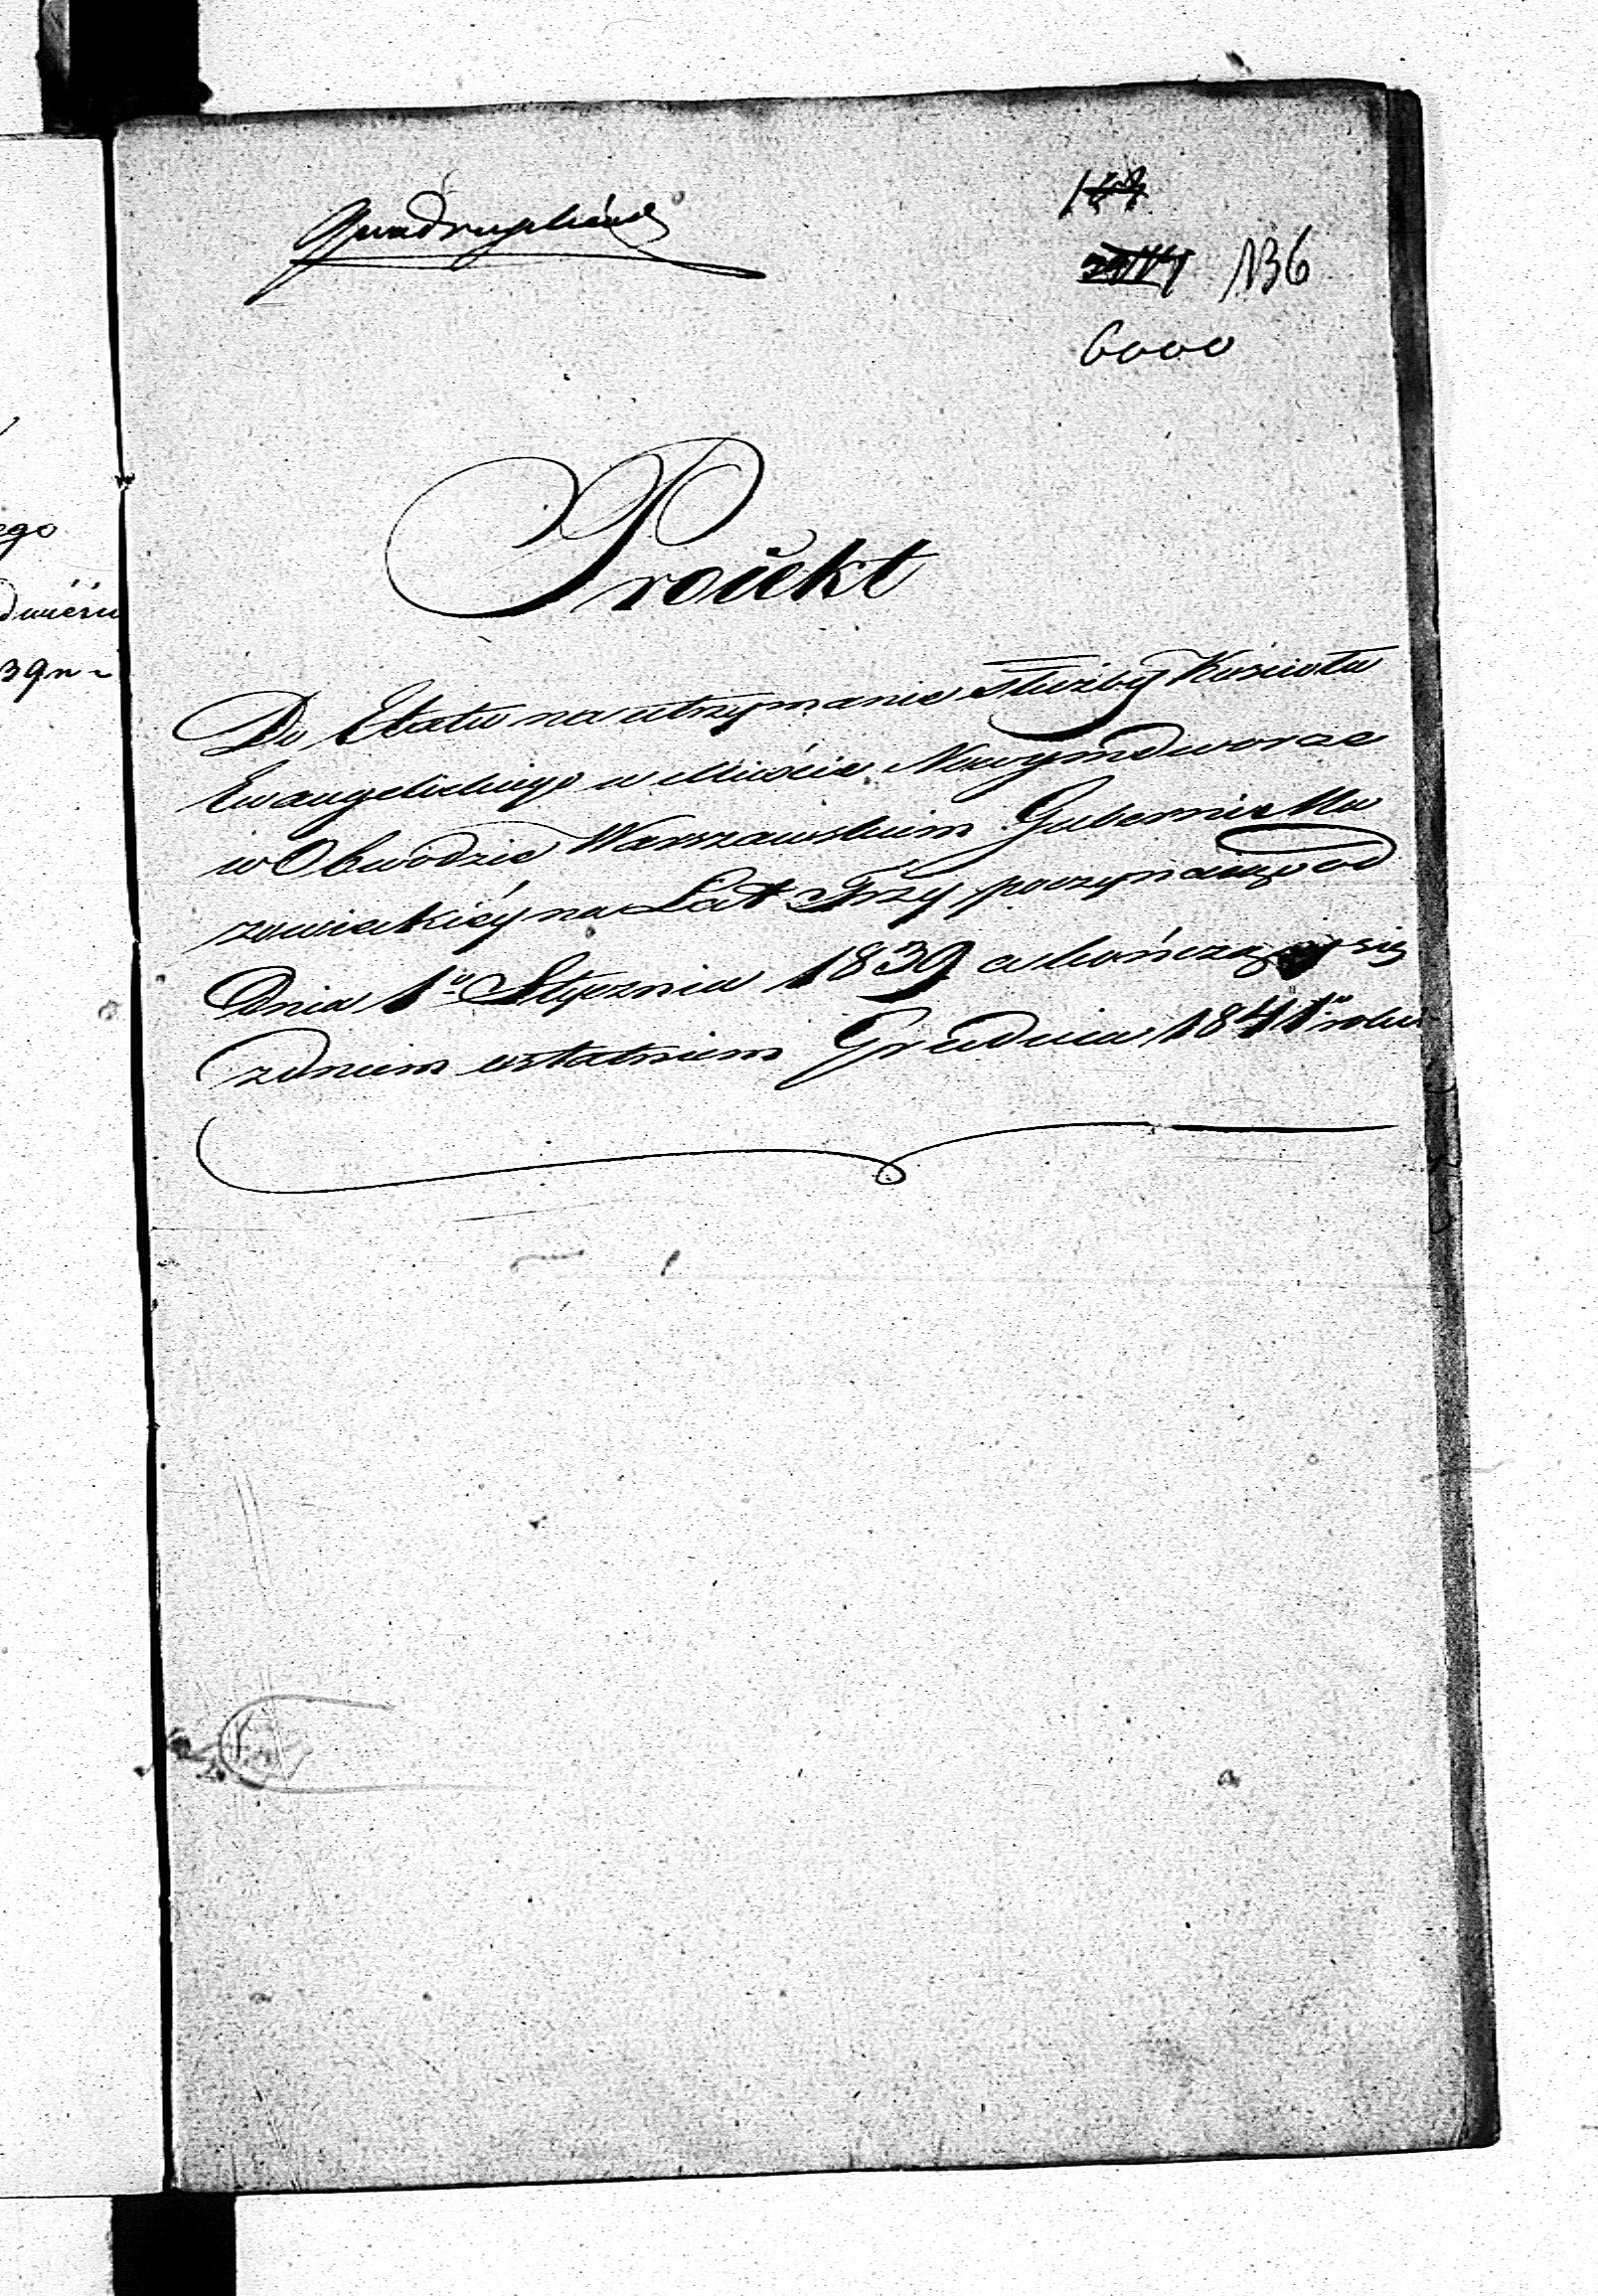 Quadruplicat
136
6000
Proiekt
Do Etatu na utrzymanie Służby Kościoła
Ewangelickiego w Mieście Nowymdworze
w Obwodzie Warszawskim Gubernii Ma
zowieckiéy na Lat Trzy poczynaiąc od
Dnia 1º Stycznia 1839 a kończący się
z dniem ostatniem Grudnia 1841º roku
ego